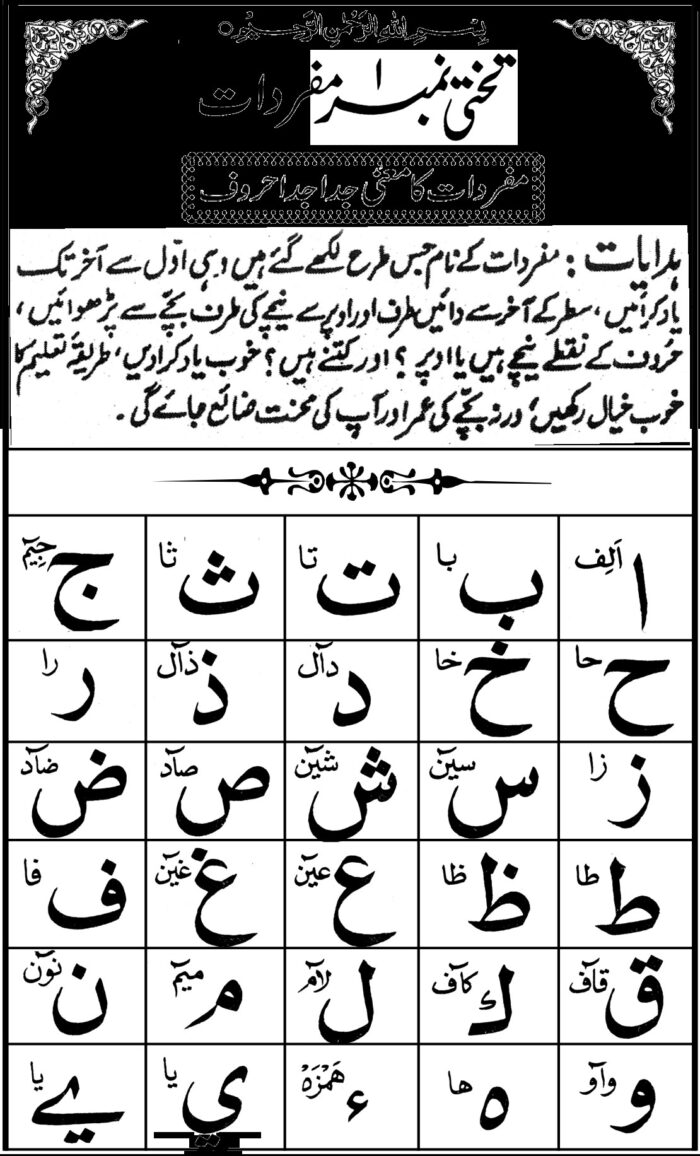 بِسْمِ اللهِ الرَّحْمٰنِ الرَّحِيْمِ
تختی نمبر ۱ مفردات
مفردات کا معنٰی جدا جدا حروف
ہدایات : مفردات کے نام جس طرح لکھے گئے ہیں وہی اوّل سے آخر تک
یاد کرائیں، سطر کے آخر سے دائیں طرف اور اوپر سے نیچے کی طرف بچّے سے پڑھوائیں،
حُروف کے نقطے نیچے ہیں یا اوپر؟ اور کتنے ہیں؟ خوب یاد کرادیں، طریقۂ تعلیم کا
خوب خیال رکھیں؛ ورنہ بچّے کی عمر اور آپ کی محنت ضائع جائے گی۔
ا اَلِف ب با ت تا ث ثا ج جِیمٓ
ح حا خ خا د دآل ذ ذآل ر را
ز زا س سینٓ ش شینٓ ص صآد ض ضآد
ط طا ظ ظا ع عینٓ غ غینٓ ف فا
ق قآف ك کآف ل لآم م میمٓ ن نوٓن
و وآو ہ ھا ء ھَمْزَہْ ي یا ے یا